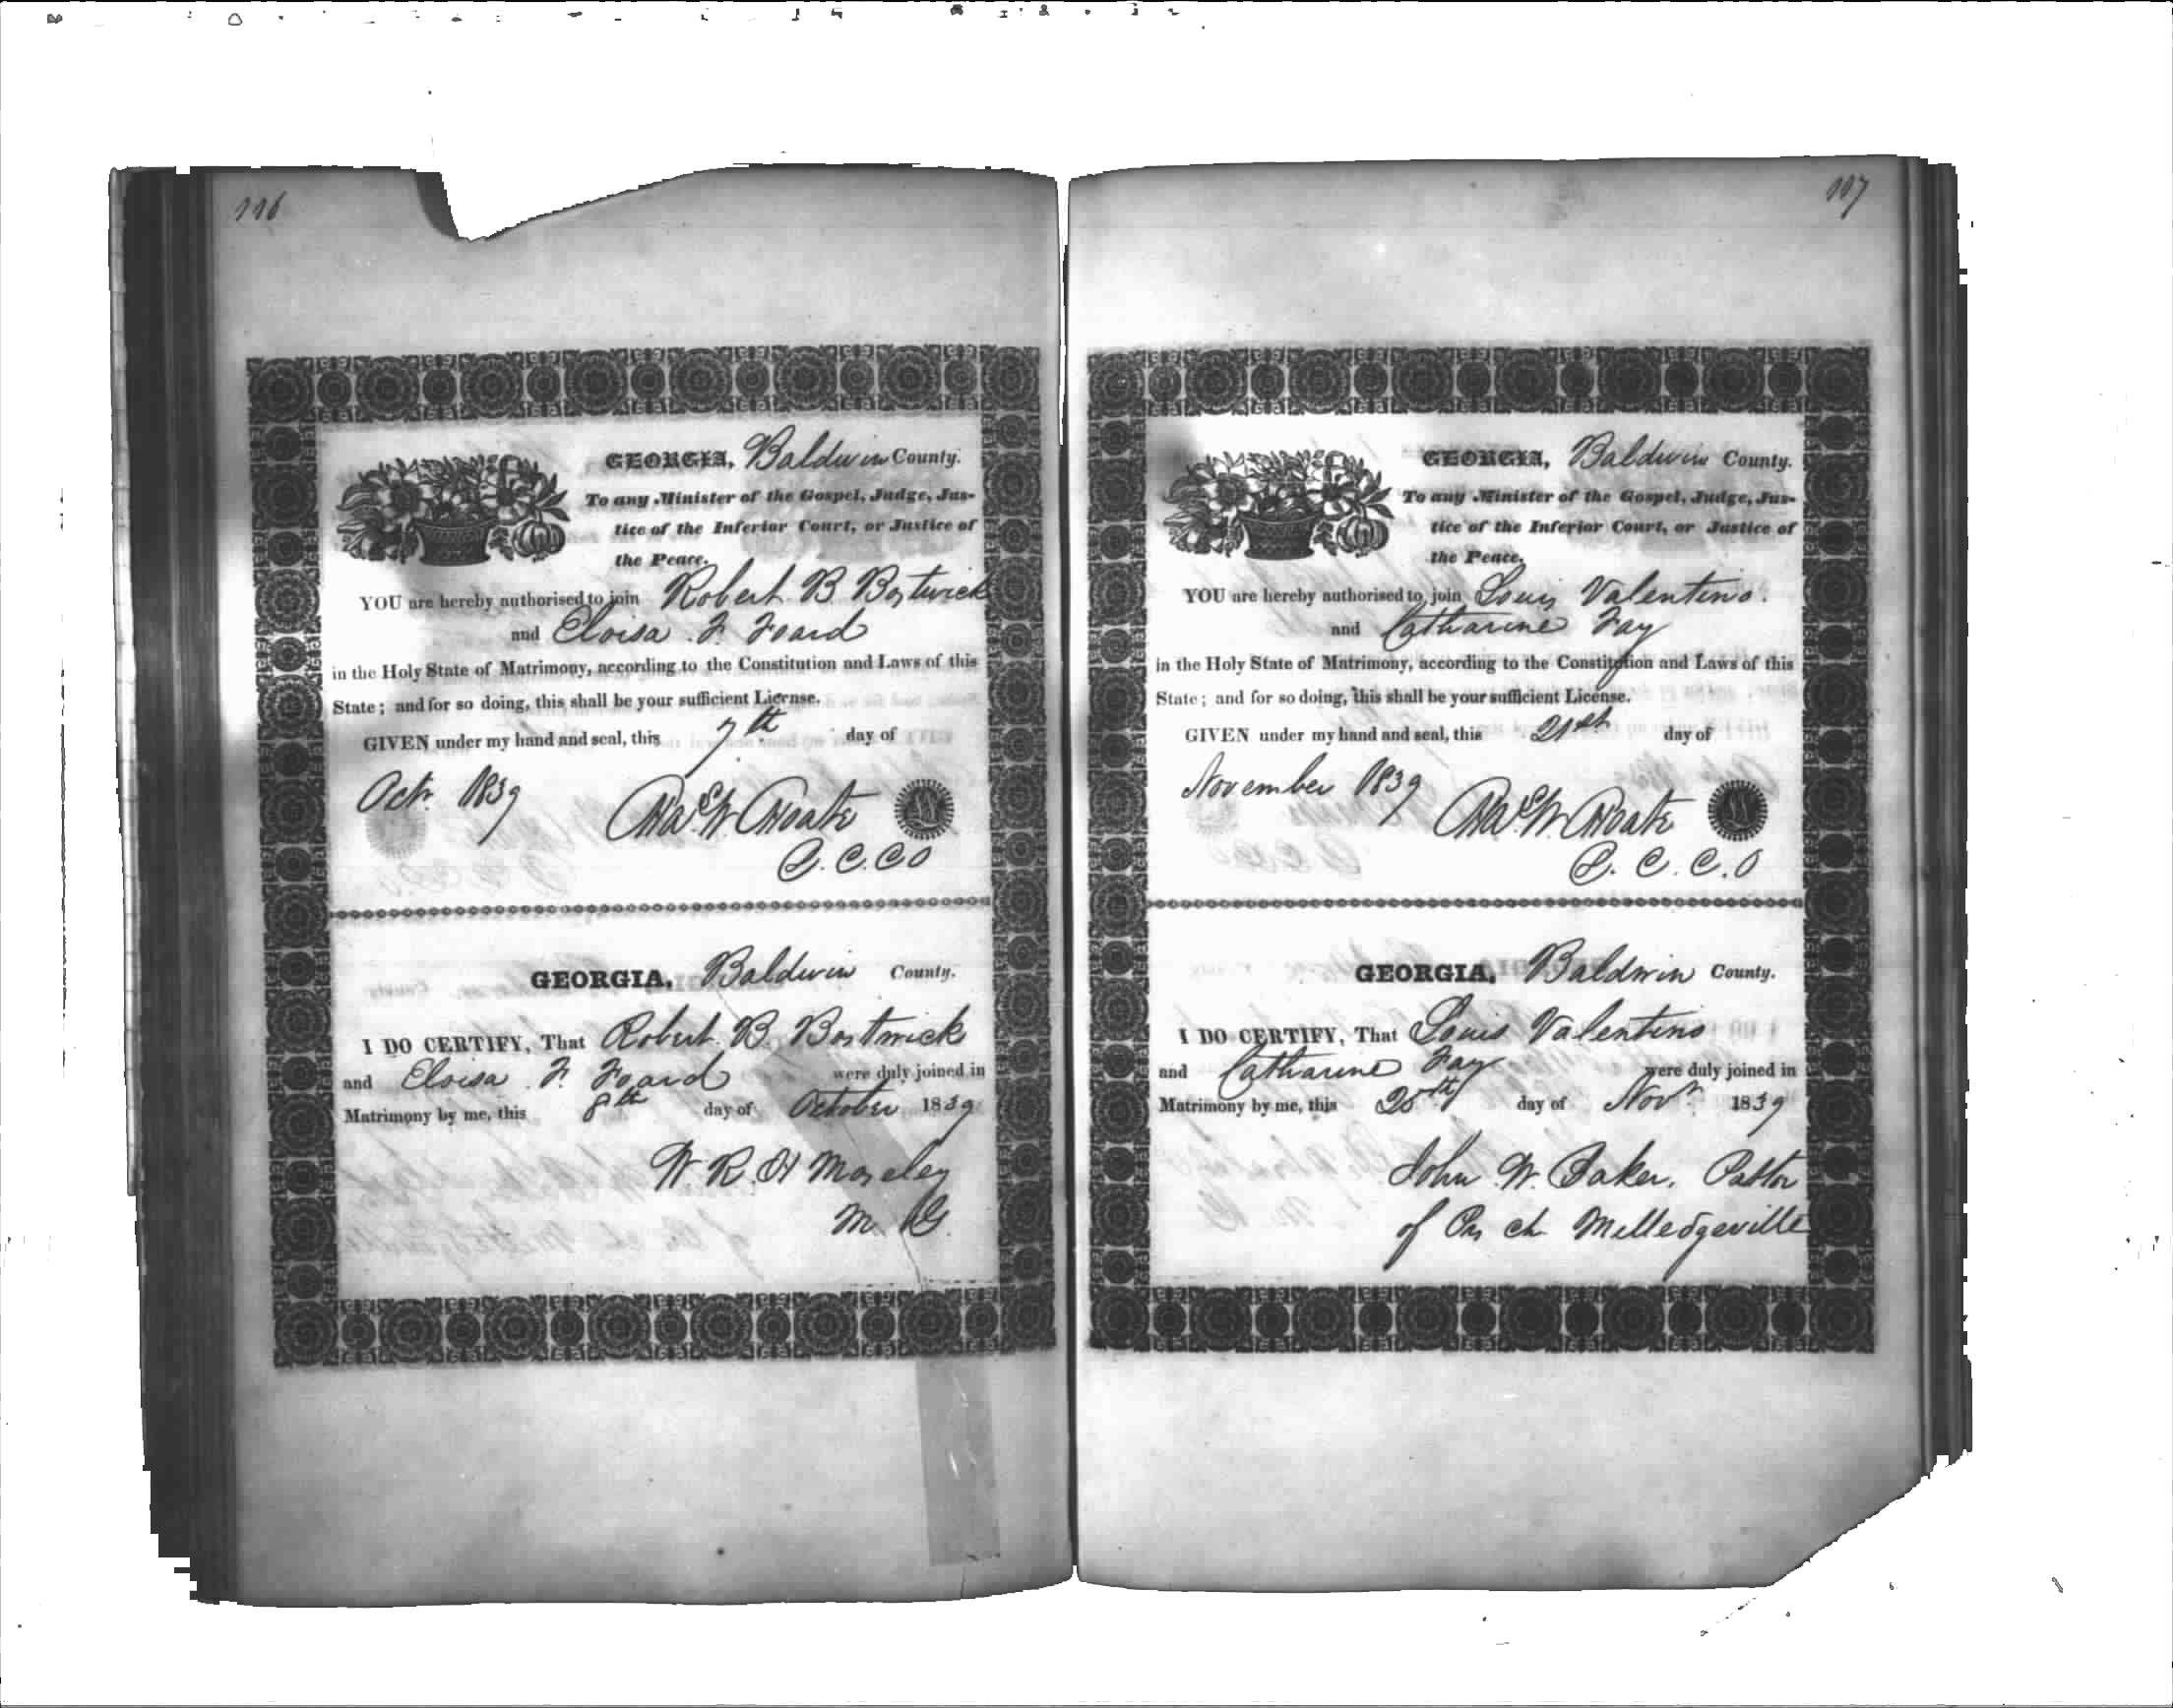 116
GEORGIA, Baldwin County.
To any Minister of the Gospel, Judge, Jus-
tice of the Inferior Court, or Justice of
the Peace.
YOU are hereby authorised to join Robert B Bostwick
and Eloisa F. Foard
in the Holy State of Matrimony, according to the Constitution and Laws of this
State; and for so doing, this shall be your sufficient License.
GIVEN under my hand and seal, this 7th day of
Octr. 1839
C. C. C O
GEORGIA, Baldwin County.
I DO CERTIFY, That Robert B. Bostwick
and Eloisa F. Foard were duly joined in
Matrimony by me, this 8th day of October 1839
W. R. H Moseley
M. G
117
GEORGIA, Baldwin County.
To any Minister of the Gospel, Judge, Jus-
tice of the Inferior Court, or Justice of
the Peace.
YOU are hereby authorised to join Louis Valentino.
and Catharine Fay
in the Holy State of Matrimony, according to the Constitution and Laws of this
State; and for so doing, this shall be your sufficient License.
GIVEN under my hand and seal, this 21st day of
November 1839
C. C. C. O
GEORGIA, Baldwin County.
I DO CERTIFY, That Louis Valentino
and Catharine Fay were duly joined in
Matrimony by me, this day of Novr. 1839
John W. Baker, Pastor
of ch. Milledgeville